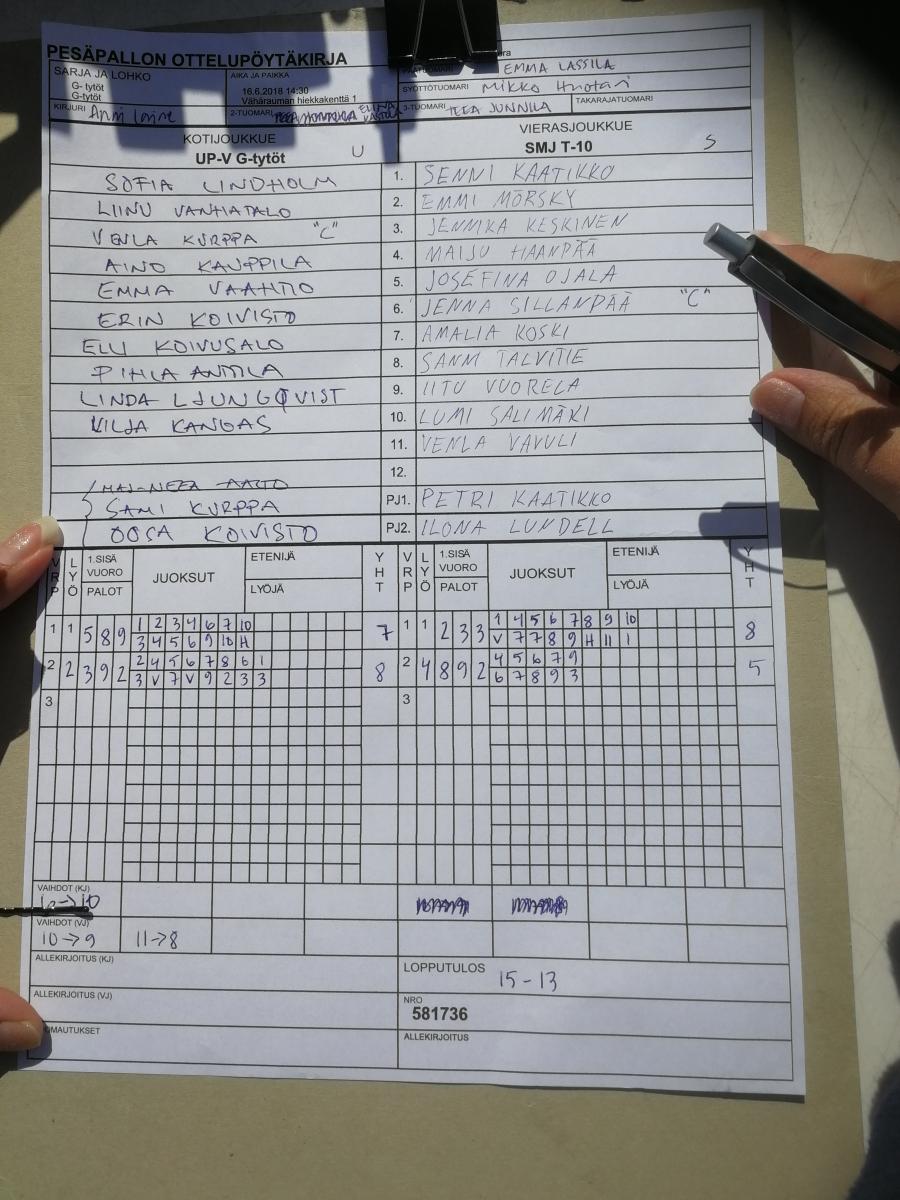 PESÄPALLON OTTELUPÖYTÄKIRJA
SARJA JA LOHKO
G- tytöt
G-tytöt
AIKA JA PAIKKA
16.6.2018 14:30
Vähärauman hiekkakenttä 1
EMMA LASSILA
SYÖTTÖTUOMARI Mikko Huotari
KIRJURI Anni
2-TUOMARI ELINA
3-TUOMARI TEEA JUNNILA
TAKARAJATUOMARI
KOTIJOUKKUE
UP-V G-tytöt U
VIERASJOUKKUE
SMJ T-10 S
SOFIA LINDHOLM 1. SENNI KAATIKKO
LIINU VANHATALO 2. EMMI MÖRSKY
VENLA KURPPA "C" 3. JENNIKA KESKINEN
AINO KAUPPILA 4. MAIJU HAANPÄÄ
EMMA VAAHTIO 5. JOSEFINA OJALA
ERIN KOIVISTO 6. JENNA SILLANPÄÄ "C"
ELLI KOIVUSALO 7. AMALIA KOSKI
PIHLA ANTTILA 8. SANNI TALVITIE
LINDA LJUNGQVIST 9. IITU VUORELA
VILJA KANGAS 10. LUMI SALIMÄKI
11. VENLA VAVULI
12.
MAJ-NEEA AALTO
SAMI KURPPA PJ1. PETRI KAATIKKO
OOSA KOIVISTO PJ2. ILONA LUNDELL
VRP LYÖ 1.SISÄ VUORO PALOT JUOKSUT ETENIJÄ LYÖJÄ YHT VRP LYÖ 1.SISÄ VUORO PALOT JUOKSUT ETENIJÄ LYÖJÄ YHT
1 1 5 8 9 1 2 3 4 6 7 10 7 1 1 2 3 3 1 4 5 6 7 8 9 10 8
3 4 5 6 9 10 H V 7 7 8 9 H 11 1
2 2 3 9 2 2 4 5 6 7 8 6 1 8 2 4 8 9 2 4 5 6 7 9 5
3 V 7 V 9 2 3 3 6 7 8 9 3
3 3
VAIHDOT (KJ)
VAIHDOT (VJ)
10→9 11→8
ALLEKIRJOITUS (KJ)
LOPPUTULOS 15-13
ALLEKIRJOITUS (VJ)
NRO
581736
HUOMAUTUKSET
ALLEKIRJOITUS